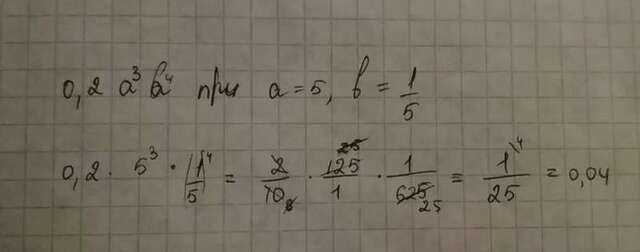 0,2 a³ b⁴ при a = 5, b = 1/5
0,2 · 5³ · (1/5)⁴ = 2/10 · 125/1 · 1/625 = 1/25 = 0,04